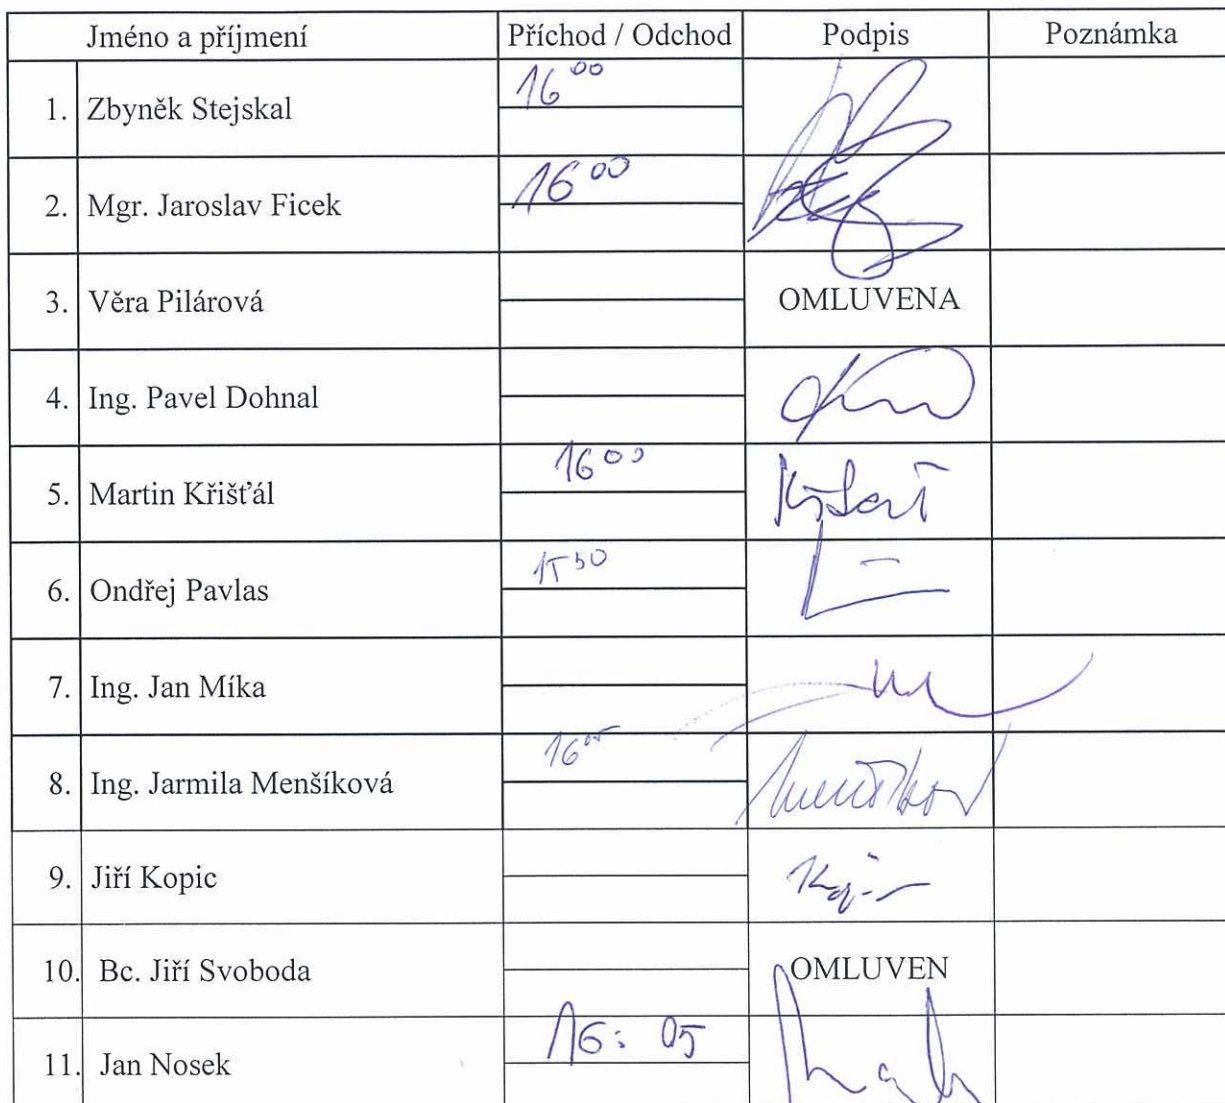 Jméno a příjmení Příchod / Odchod Podpis Poznámka
16 00
1. Zbyněk Stejskal
16 00
2. Mgr. Jaroslav Ficek
3. Věra Pilárová OMLUVENA
4. Ing. Pavel Dohnal
16 00
5. Martin Křišťál
15 50
6. Ondřej Pavlas
7. Ing. Jan Míka
16 05
8. Ing. Jarmila Menšíková
9. Jiří Kopic
10. Bc. Jiří Svoboda OMLUVEN
16: 05
11. Jan Nosek